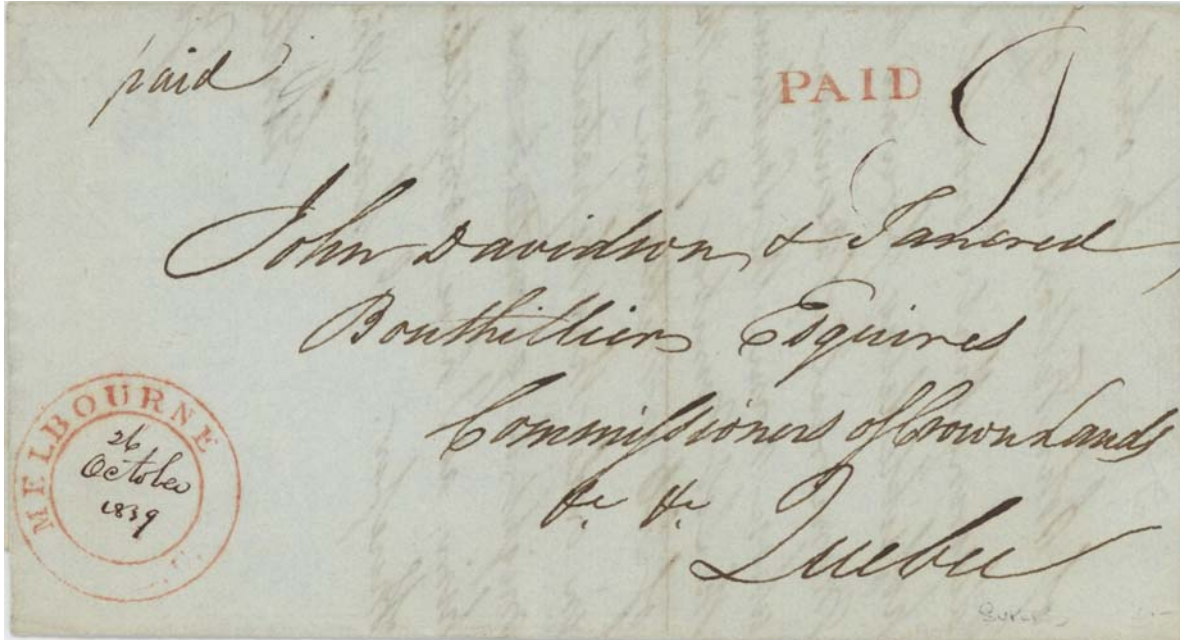 paid
PAID 9
John Davidson & Tancred
Bouthillier Esquires
Commissioners of Crown Lands
&c &c
Quebec
MELBOURNE
26
October
1839